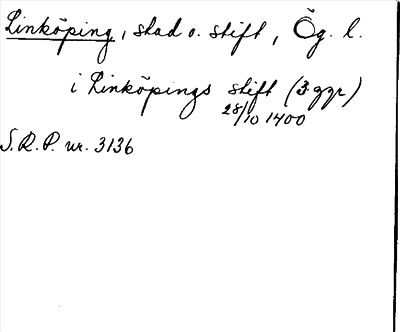 Linköping, stad o. stift, Ög. l.
i Linköpings stift (3 ggr)
28/10 1400
S.R.P. nr. 3136